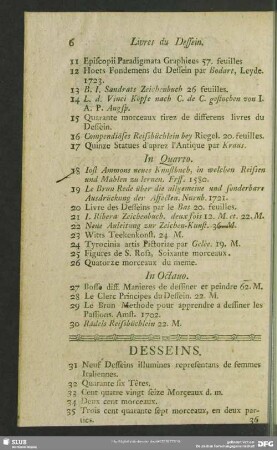 6 Livres du Dessein.
11 Episcopii Paradigmata Graphices 57. feuilles
12 Hoets Fondemens du Dessein par Bodart, Leyde.
1723.
13 B. I. Sandrats Zeichenbuch 26 feuilles.
14 L. d. Vinci Köpfe nach C. de C. gestochen von I.
A. P. Augsp.
15 Quarante morceaux tirez de differens livres du
Dessein.
16 Compendiöses Reissbüchlein bey Riegel. 20. feuilles.
17 Quinze Statues d'aprez l'Antique par Kraus.
In Quarto.
18 Iost Ammons neues Kunstbuch, in welchen Reissen
und Mahlen zu lernen. Frff. 1580.
19 Le Brun Rede über die allgemeine und sonderbare
Ausdrückung der Affecten. Nurnb. 1721.
20 Livre des Desseins par le Bas 20. feuilles.
21 I. Ribera Zeichenbuch, deux fois 12. M. et. 22. M.
22 Neue Anleitung zur Zeichen-Kunst.
23 Witts Teekenkonst. 24 M.
24 Tyrocinia artis Pictoriae par Gelée. 19. M.
25 Figures de S. Rosa, Soixante morceaux.
26 Quatorze morceaux du meme.
In Octavo.
27 Bosse diff. Manieres de dessiner et peindre 62. M.
28 Le Clerc Principes du Dessein. 22 M.
29 Le Brun Methode pour apprendre a dessiner les
Passions. Amst. 1702.
30 Radels Reissbüchlein 22 M.
DESSEINS.
31 Neuf Desseins illumines representans de femmes
Italiennes.
32 Quarante six Têtes.
33 Cent quatre vingt seize Morçeaux d. m.
34 Deux cent morceaux.
35 Trois cent quarante sept morceaux, en deux par-
ties.
36
SLUB